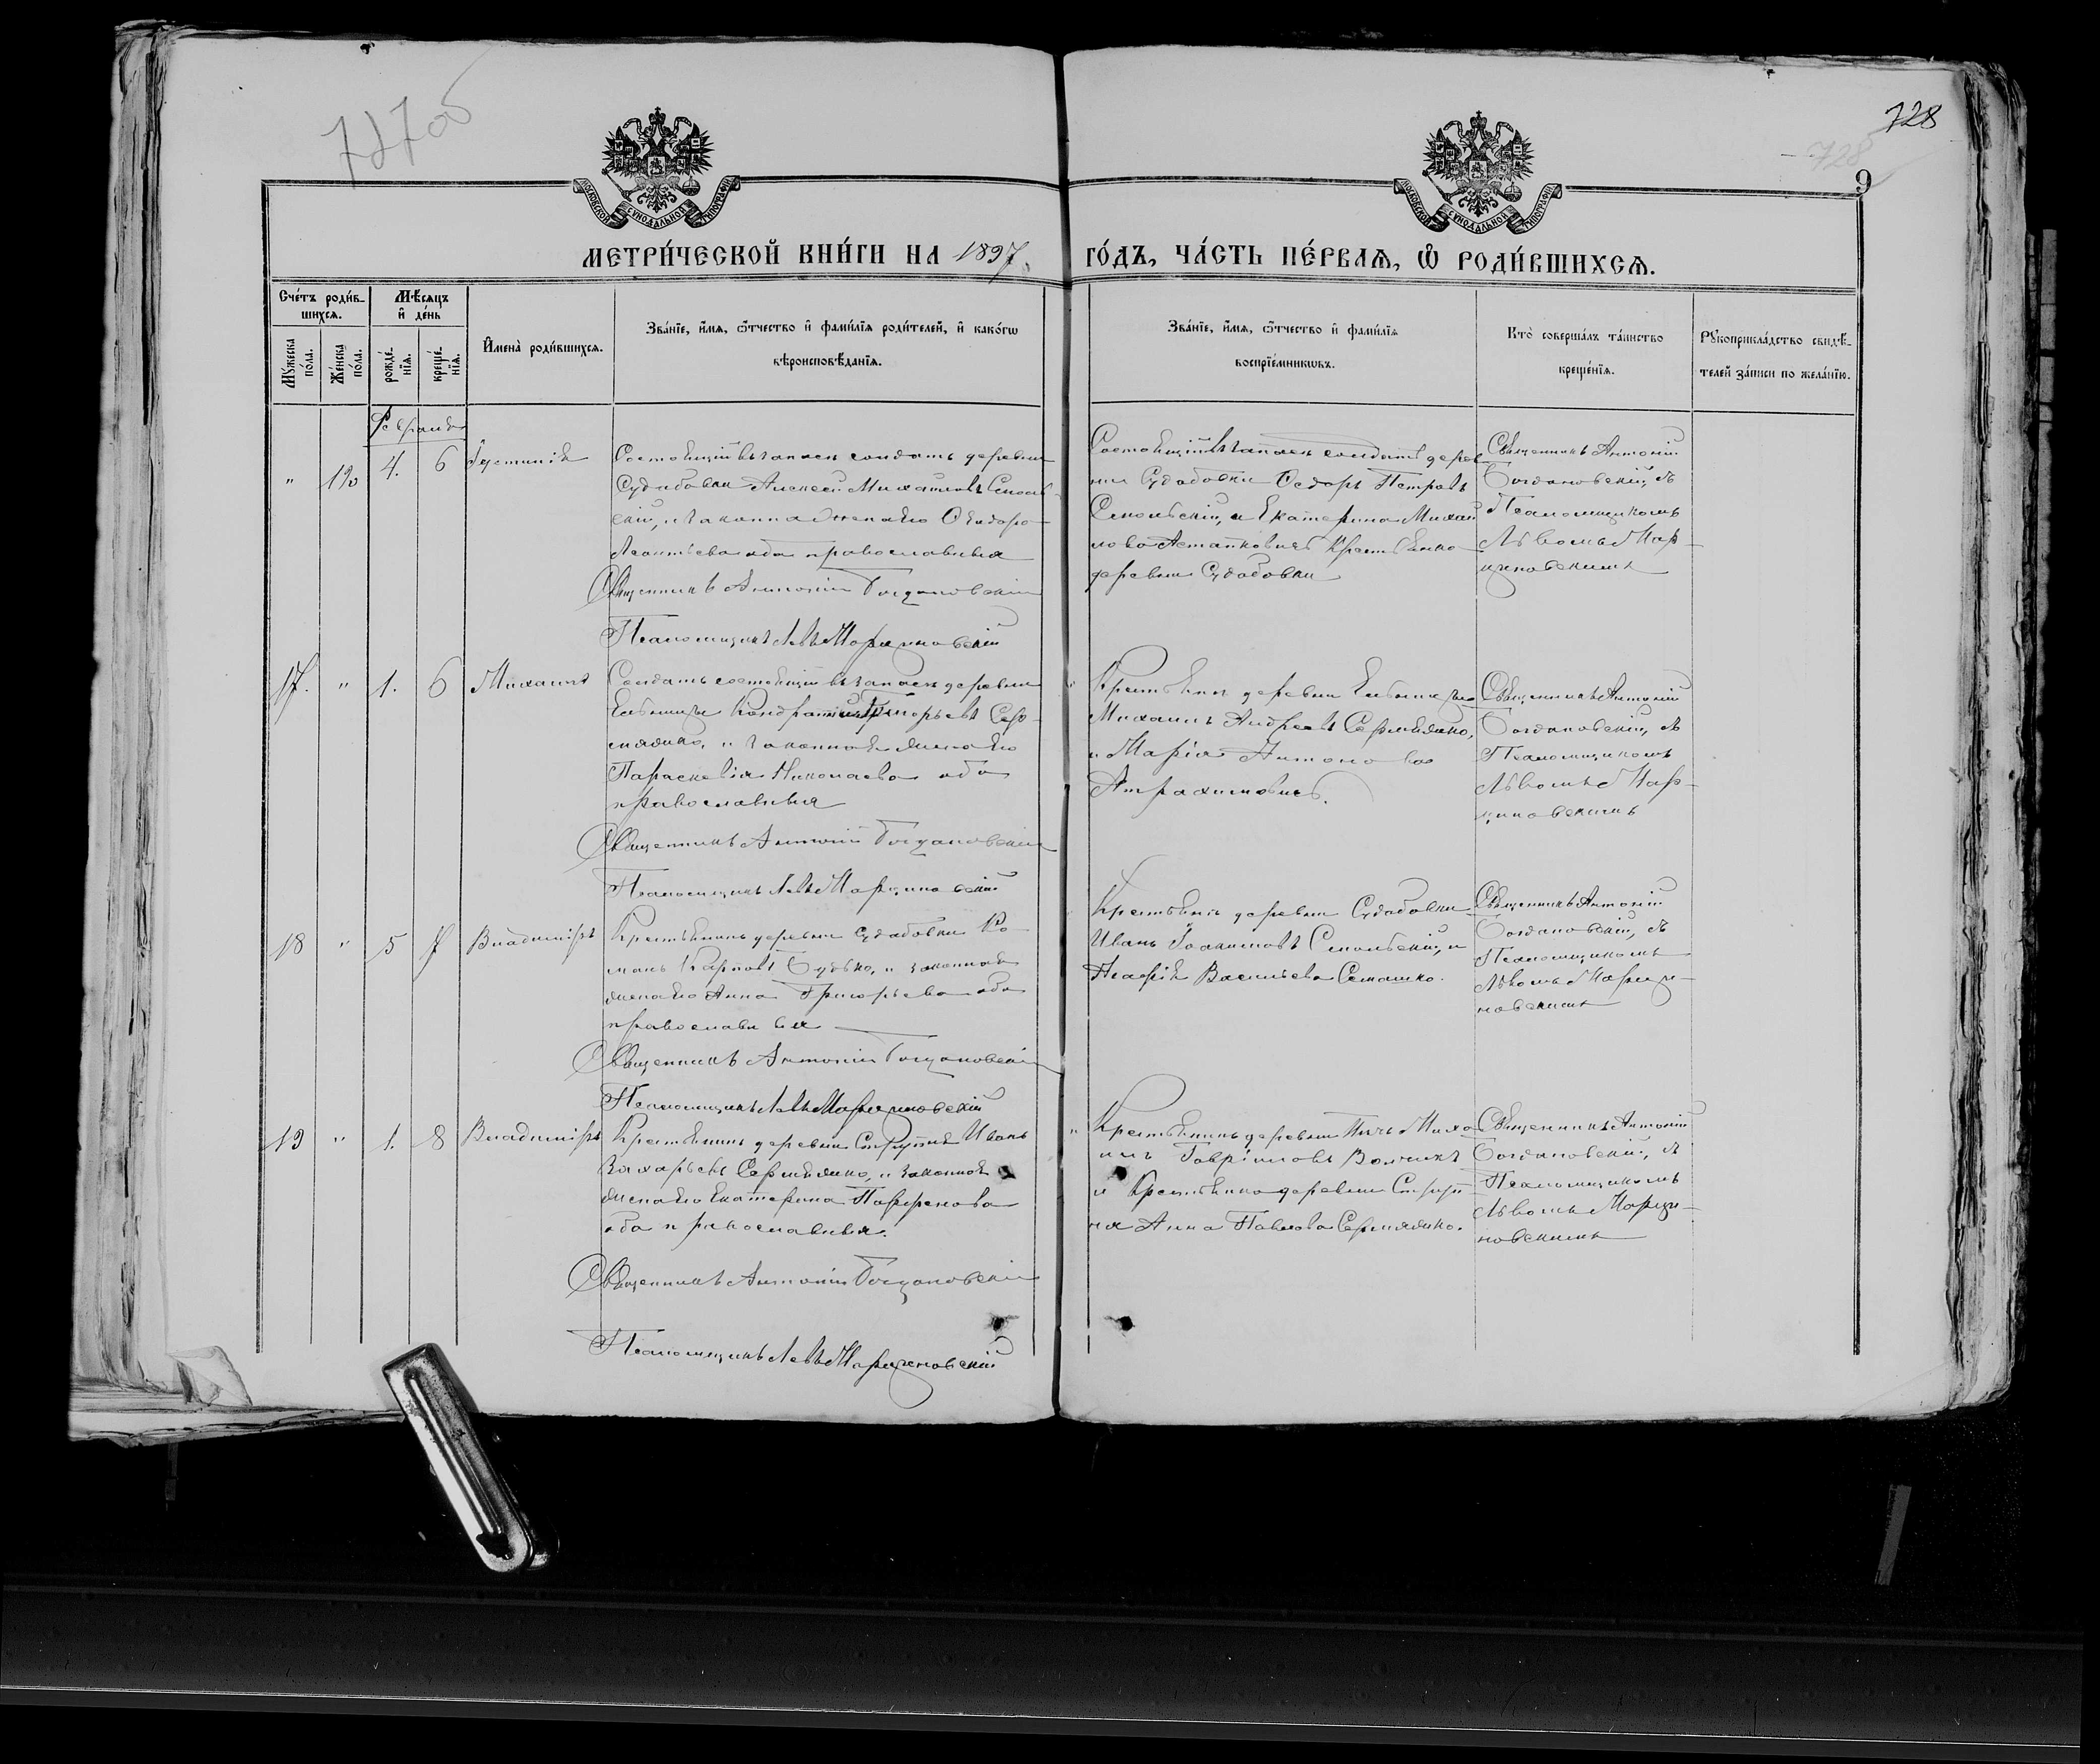 728
9
МОСКОВСКОЙ СѴНОДАЛЬНОЙ ТИПОГРАФІИ
МОСКОВСКОЙ СѴНОДАЛЬНОЙ ТИПОГРАФІИ
МЕТРИ́ЧЕСКОЙ КНИ́ГИ НА 1897
ГО́ДЪ, ЧА́СТЬ ПЕ́РВАѦ, Ѡ҆ РОДИ́ВШИХСѦ.
Сче́тъ роди́в-
шихсѧ.
Мꙋ́жеска по́ла.
Же́нска по́ла.
Мѣ́сѧцъ
и҆ де́нь
рожде́-
нїѧ.
креще́-
нїѧ.
И҆мена̀ роди́вшихсѧ.
Зва́нїе, и҆́мѧ, ѻ҆́тчество и҆ фами́лїѧ роди́телей, и҆ како́гѡ
вѣроисповѣ́данїѧ.
Зва́нїе, и҆́мѧ, ѻ҆́тчество и҆ фами́лїѧ
воспрїе́мникѡвъ.
Кто̀ соверша́лъ та́инство
креще́нїѧ.
Рꙋкоприкла́дство свидѣ́-
телей за́писи по жела́нїю.
Февраля
" 12 4. 6 Іустинія
Состоящій въ запасѣ солдатъ деревни
Судобовки Алексѣй Михайловъ Смоль-
скій, и законная жена его Ѳеодора
Леонтьева оба православныя
Священникъ Антоній Богдановскій
Псаломщикъ Левъ Марциновскій
Состоящій въ запасѣ солдатъ дерев
ни Судобовки Ѳедоръ Петровъ
Смольскій, и Екатерина Михай
лова Астапковичъ крестьянка
деревни Судобовки
Священникъ Антоній
Богдановскій, съ
Псаломщикомъ
Львомъ Мар-
циновскимъ
17. " 1. 6 Михаилъ
Солдатъ состоящій въ запасѣ деревни
Ельницы Кондратій Григорьевъ Сер-
мяжко, и законная жена его
Параскевія Николаева оба
православныя
Священникъ Антоній Богдановскій
Псаломщикъ Левъ Марциновскій
Крестьянинъ деревни Ельницы
Михаилъ Андреевъ Сермяжко,
и Марія Антонова
Атрахимовичъ.
Священникъ Антоній
Богдановскій, съ
Псаломщикомъ
Львомъ Мар-
циновскимъ
18 " 5 7 Владиміръ
Крестьянинъ деревни Судобовки Ро-
манъ Карповъ Будько, и законная
жена его Анна Григорьева оба
православныя
Священникъ Антоній Богдановскій
Псаломщикъ Левъ Марциновскій
Крестьянинъ деревни Судобовки
Иванъ Іоакимовъ Смольскій, и
Агафія Васильева Семашко.
Священникъ Антоній
Богдановскій, съ
Псаломщикомъ
Львомъ Марци-
новскимъ
19 " 1. 8 Владиміръ
Крестьянинъ деревни Иванъ
Захарьевъ Сермяжко, и законная
жена его Екатерина Парфенова
оба православныя.
Священникъ Антоній Богдановскій
Псаломщикъ Левъ Марциновскій
Крестьянинъ деревни Миха
илъ Гавріиловъ Волчекъ
и Крестьянка деревни
Анна Павлова Сермяжко.
Священникъ Антоній
Богдановскій, съ
Псаломщикомъ
Львомъ Марци-
новскимъ